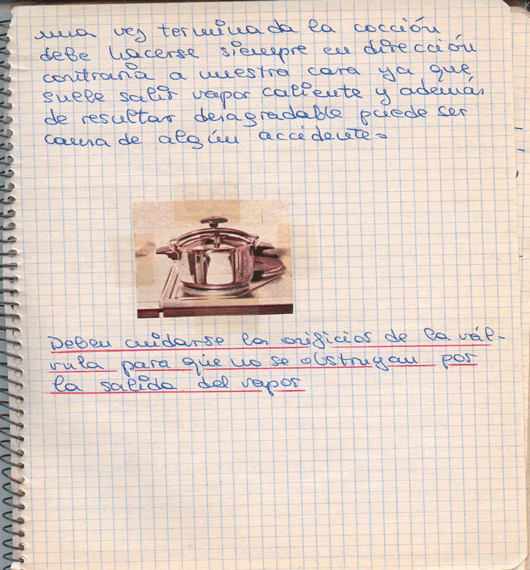 una vez terminada la cocción
debe hacerse siempre en dirección
contraria a nuestra cara ya que
suele salir vapor caliente y además
de resultar desagradable puede ser
causa de algún accidente.
Deben cuidarse la orificios de la vál-
vula para que no se obstruyan por
la salida del vapor